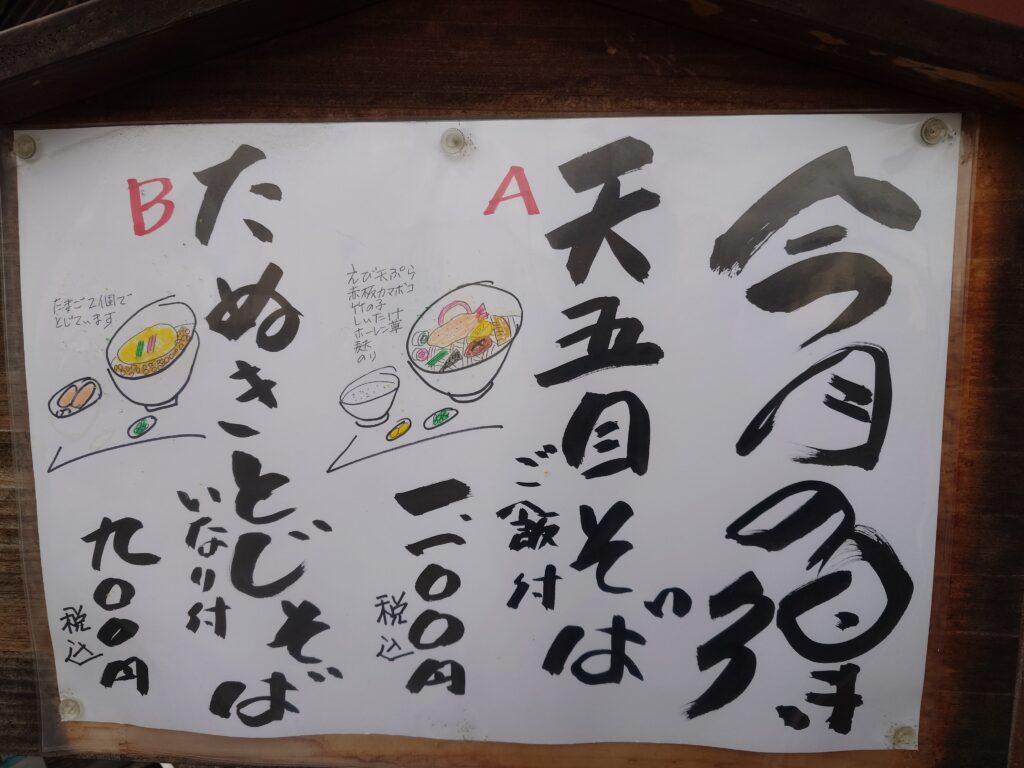 今月の得
A
天五目そば
ご飯付
えび天ぷら
赤板カマボコ
竹の子
しいたけ
ホーレン草
麩
のり
一、一〇〇円
税込
B
たぬきとじそば
いなり付
たまご2個で
とじています
九〇〇円
税込